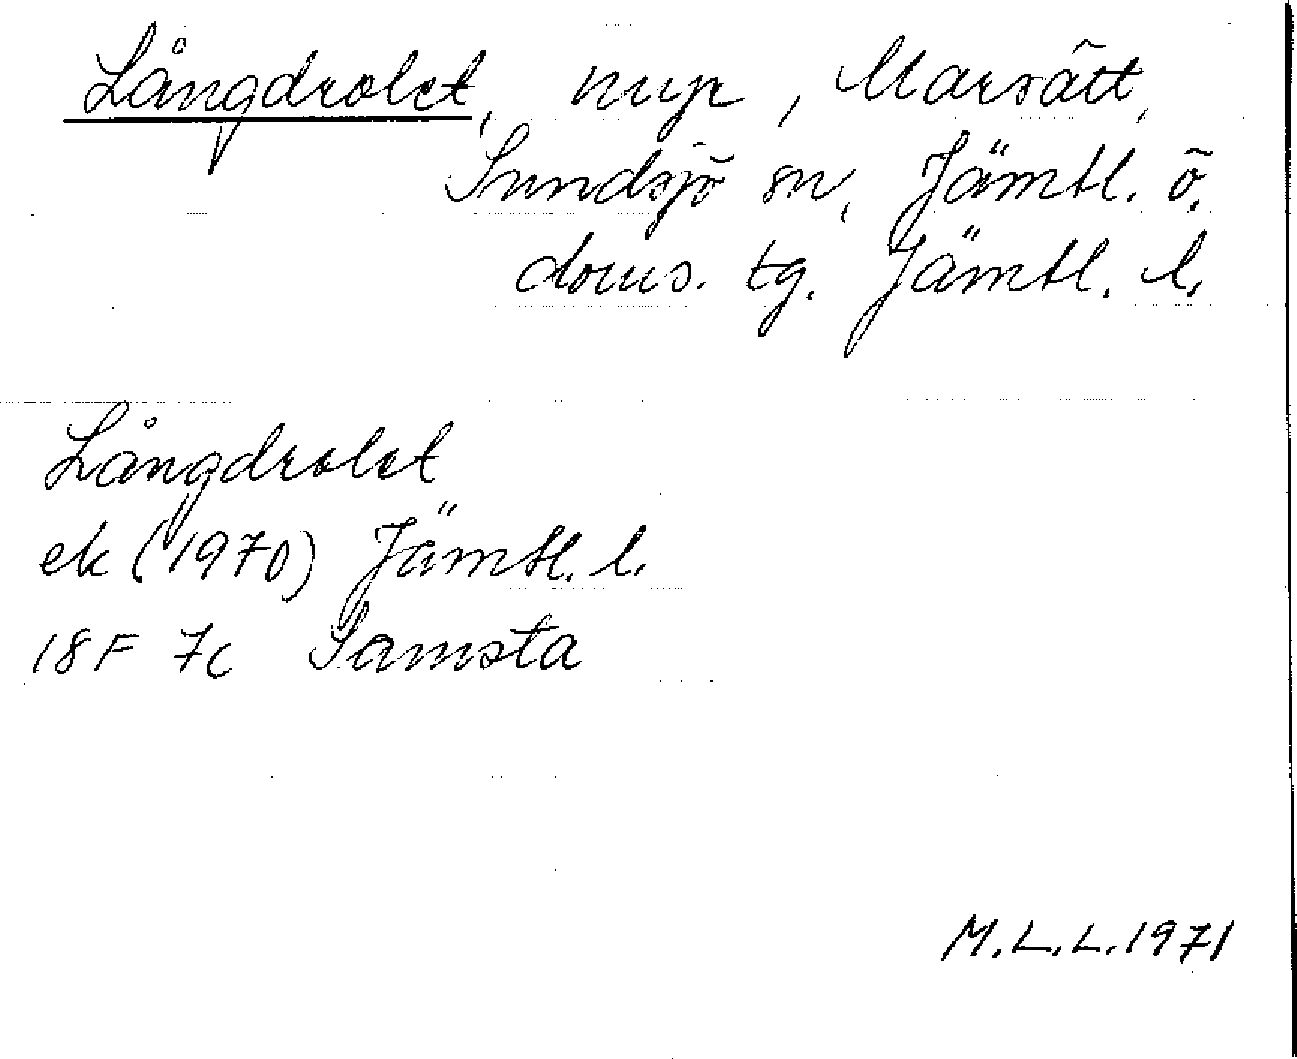 Långdrolet, myr, Marsätt,
Sundsjö sn, Jämtl. ö.
doms. tg. Jämtl. l.
Långdrolet
ek (1970) Jämtl. l.
18F 7c Samsta
M.L.L. 1971